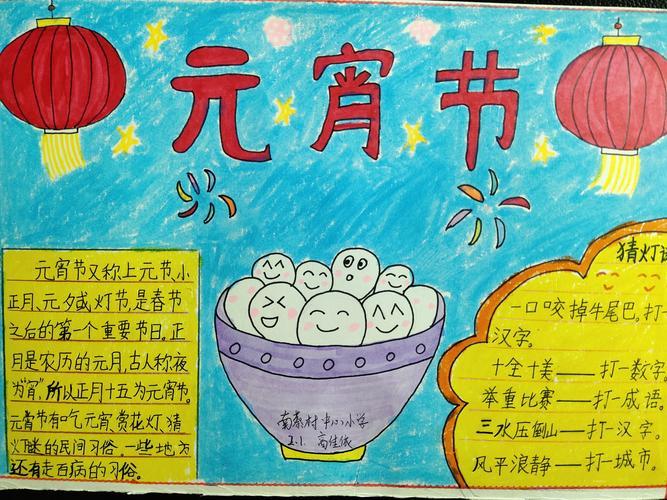 元宵节
元宵节又称上元节、小
正月、元夕或灯节,是春节
之后的第一个重要节日。正
月是农历的元月,古人称夜
为"宵",所以正月十五为元宵节。
元宵节有吃元宵、赏花灯、猜
灯谜的民间习俗。一些地方
还有走百病的习俗。
中心小学
猜灯谜
一口咬掉牛尾巴。打一
汉字。
十全十美——打一数字
举重比赛——打一成语。
三水压倒山——打一汉字。
风平浪静——打一城市。